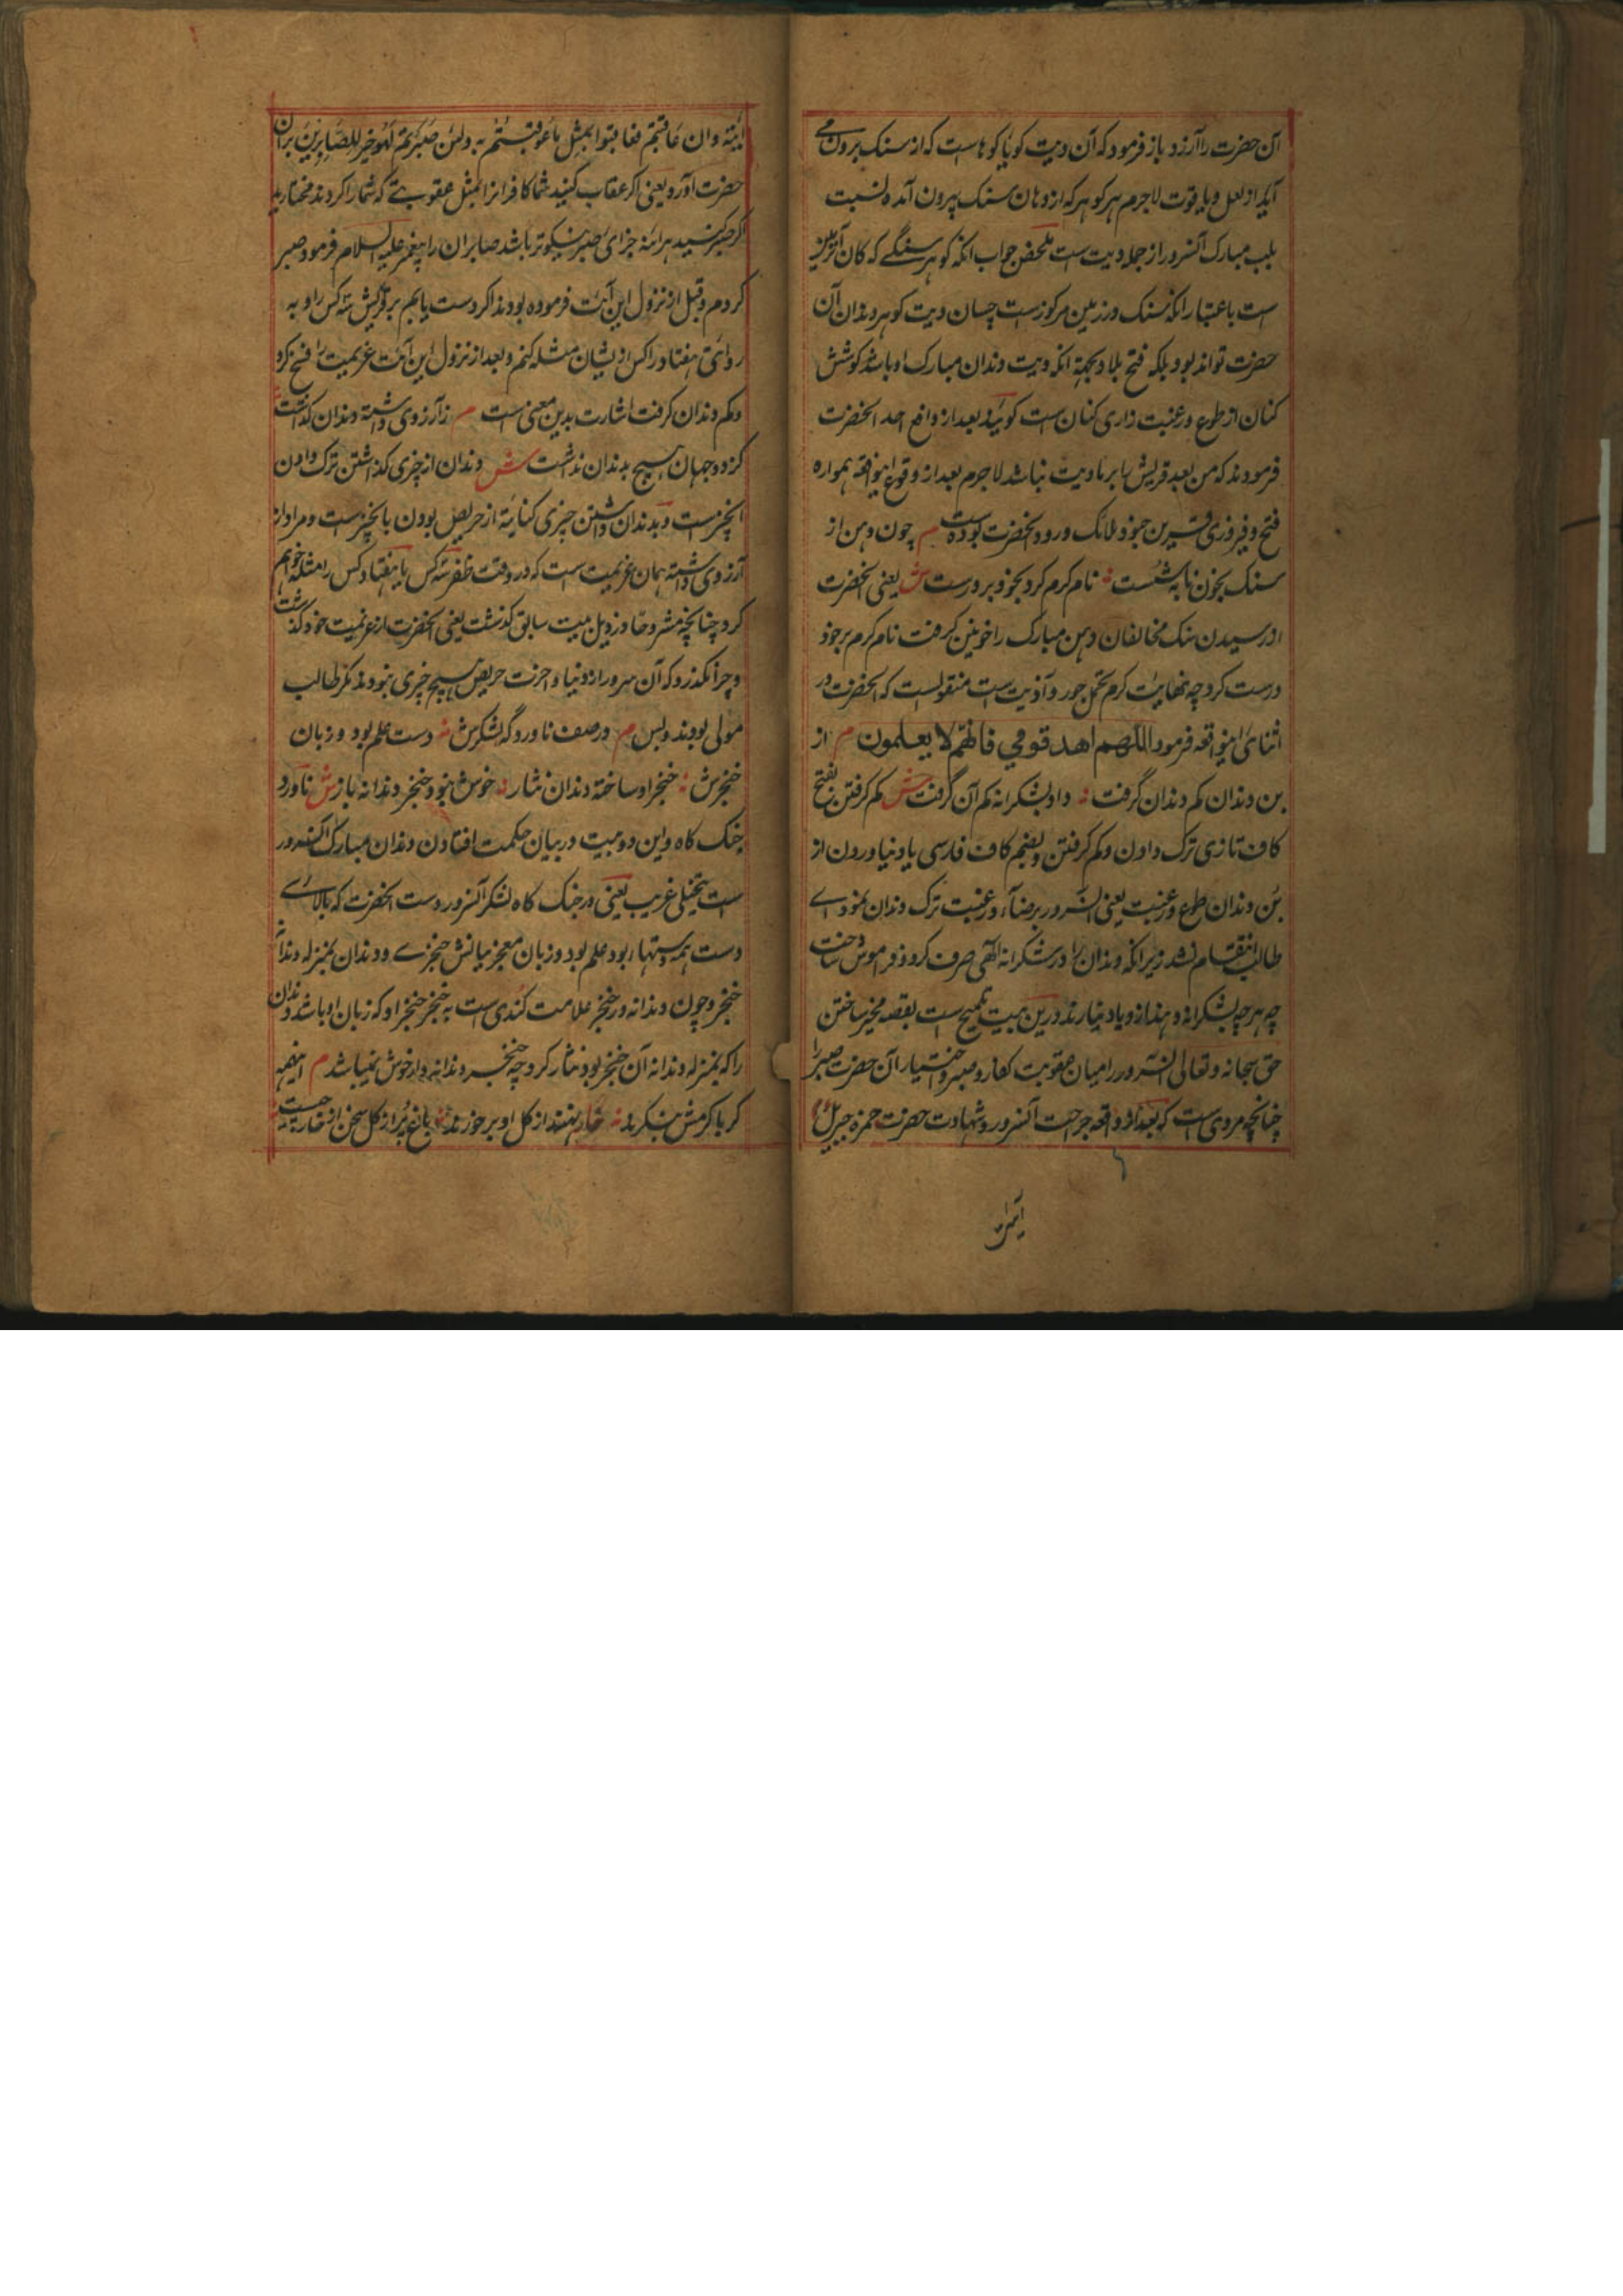 آن حضرت را آرزد و باز فرمود که آن دیت کویا کوهاست که از سنک برون می
آید از لعل و یاقوت لاجرم هر کوهر که از دهان سنک بیرون آمده نسبت
بلب مبارک آنسرور از جمله دیت است ملخص جواب انکه کوهر سنگے که کان
است باعتبار انکه سنک در زمین مرکوزست چسان دیت کوهر دندان آن
حضرت تواند بود بلکه فتح بلاد بجهة انکه دیت دندان مبارک او باشد کوشش
کنان از طوع و رغبت زاری کنان است کویند بعد از واقع احد انحضرت
فرمودند که من بعد قریش را بر ما دیت نباشد لاجرم بعد از وقوع اینواقعه همواره
فتح و فیروزی قرین جنود ملائک ورود انحضرت بوده است م چون دهن از
سنک بخون نابه شست نام کرم کرد بخود بر درست ش یعنی انحضرت
از رسیدن سنک مخالفان دهن مبارک را خونین کرفت نام کرم بر خود
درست کرد چه نهایت کرم تحمل جور و آذیت است منقولست که انحضرت در
اثنای اینواقعه فرمود اللهم اهد قومي فانهم لا یعلمون م از
بن دندان کم دندان گرفت داد بشکرانه کم آن گرفت ش کم کرفتن بفتح
کاف تازی ترک دادن و کم کرفتن و بضم کاف فارسی یا دنیاوردن از
بن دندان طوع و رغبت یعنی انسرور برضا و رغبت ترک دندان نمود اے
طالب انتقام نشد زیرا که دندان را در شکرانه الهی صرف کرد و فراموش ساخت
چه هر چه بشکرانه دهند از و یاد نیارند درین بیت تلمیح است بقصه مخیر ساختن
حق سبحانه و تعالی انسرور را میان عقوبت کفار و صبر و اختیار آن حضرت صبر را
چنانچه مروی است که بعد از واقعه جراحت آنسرور و شهادت حضرت حمزه جبریل
این آیة
آیة و ان عاقبتم فعاقبوا بمثل ما عوقبتم به ولئن صبرتم لهو خیر للصابرین بران
حضرت آورد یعنی اگر عقاب کنید شما کافرانرا بمثل عقوبتے که شما را کردند مختارید
اگر صبر کنید هرائنه جزای صبر نیکوتر باشد صابران را پیغمبر علیه السلام فرمود صبر
کردم و قبل از نزول این آیت فرموده بودند اکر دست یابم بر قریش سته کس را و به
روایتی هفتاد را کس از یشان مثله کنم و بعد از نزول این آیت عزیمت را فسخ کرد
و کم دندان کرفت اشارت بدین معنی است م زآرزوی داشته دندان گذاشت
کز دو جهان هیچ بدندان نداشت ش دندان از چیزی گذاشتن ترک دادن
انچیزست و بدندان داشتن چیزی کنایة از حریص بودن بانچیزست و مراد از
آرزوی داشته همان عزیمت است که در وقت ظفر سته کس یا هفتاد کس را مثله خواهم
کرد چنانچه مشروحا در ذیل بیت سابق گذشت یعنی انحضرت از عزیمت خود گذشت
و چرا نگذرد که آن سرور از دنیا و اخرت حریص هیچ چیزی نبودند مگر طالب
مولی بودند و بس م در صف ناوردگه لشکرش دست علم بود و زبان
خنجرش خنجر او ساخته دندان نثار خوش نبود خنجر دندانه باز ش ناورد
جنک کاه و این دو بیت در بیان حکمت افتادن دندان مبارک انسرور
است بتخیلی غریب یعنی در جنک کاه لشکر آنسرور دست انحضرت که بالاے
دست همه دستها بود علم بود و زبان معجز بیانش خنجرے و دندان بمنزله دندانه
خنجر و چون دندانه در خنجر علامت کندی است به خنجر خنجر او که زبان او باشد دندان
را که بمنزله دندانه آن خنجر بود نثار کرد چه خنجر دندانه دار خوش نمیباشد م اینهمه
کر با کرمش بنکرند خار نهند از کل او بر خورند باغ پر از کل سخن از خار چیست